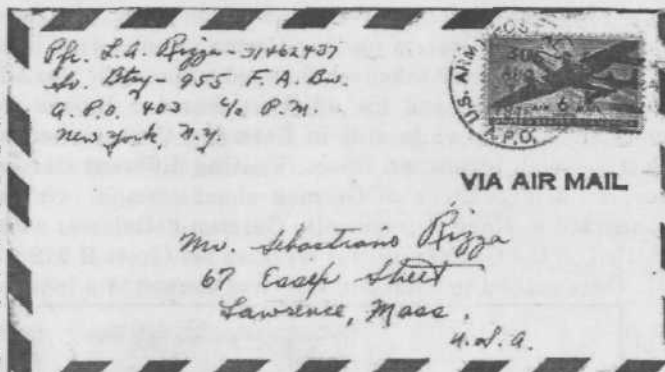 Pfc. L.A. Rizza - 31462437
Sv. Btry - 955 F.A. Bn.
A.P.O. 403 c/o P.M.
New York, N.Y.
U.S. ARMY POS
A.P.O.
AUG
6
VIA AIR MAIL
Mr. Sebastiano Rizza
67 Essex Street
Lawrence, Mass.
U.S.A.